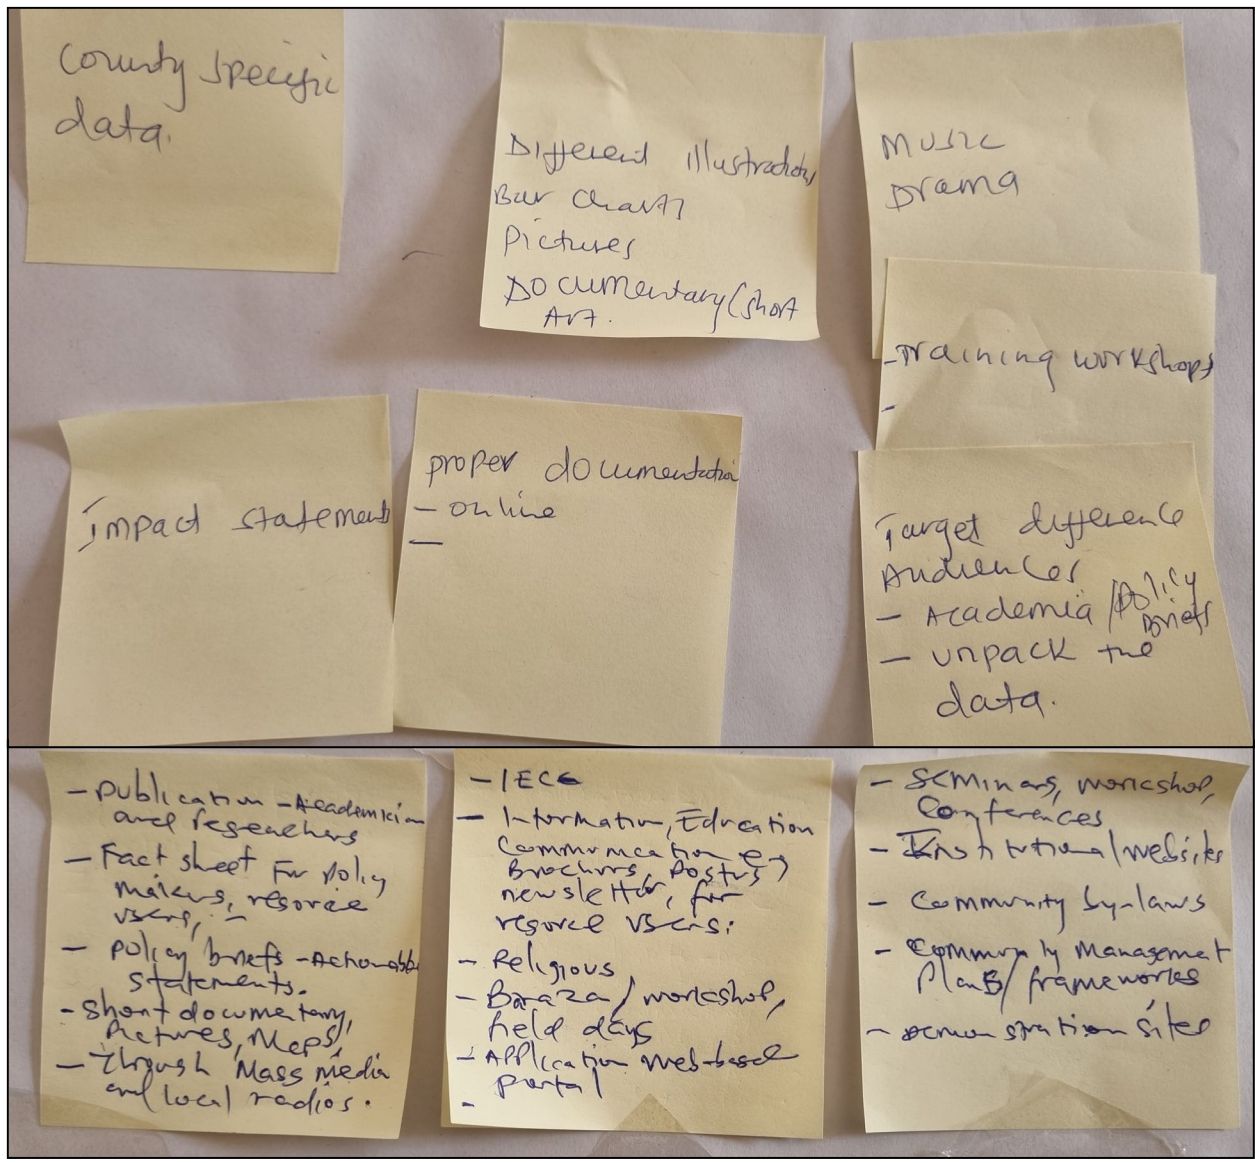 County specific
data.
Different illustrations
Bar charts
Pictures
Documentary (short
Art.
Music
Drama
- Training workshops
-
Impact statements
proper documentation
- online
-
Target difference
Audiences
- Academia / policy
briefs
- unpack the
data.
- Publication - Academician
and researchers
- Fact sheet For policy
makers, resource
users, -
- Policy briefs - Actionable
statements.
- Short documentary,
Pictures, Maps,
- Through Mass media
and local radios.
- IEC
- Information, Education
Communication e.g
Brochurs, Posters,
newsletter, for
resource users:
- Religious
- Baraza / workshop,
field days
- Application web-based
portal
-
- Seminars, workshop,
Conferences
- Institutional websites
- Community by-laws
- Community Management
Plans / frameworks
- Demonstration sites